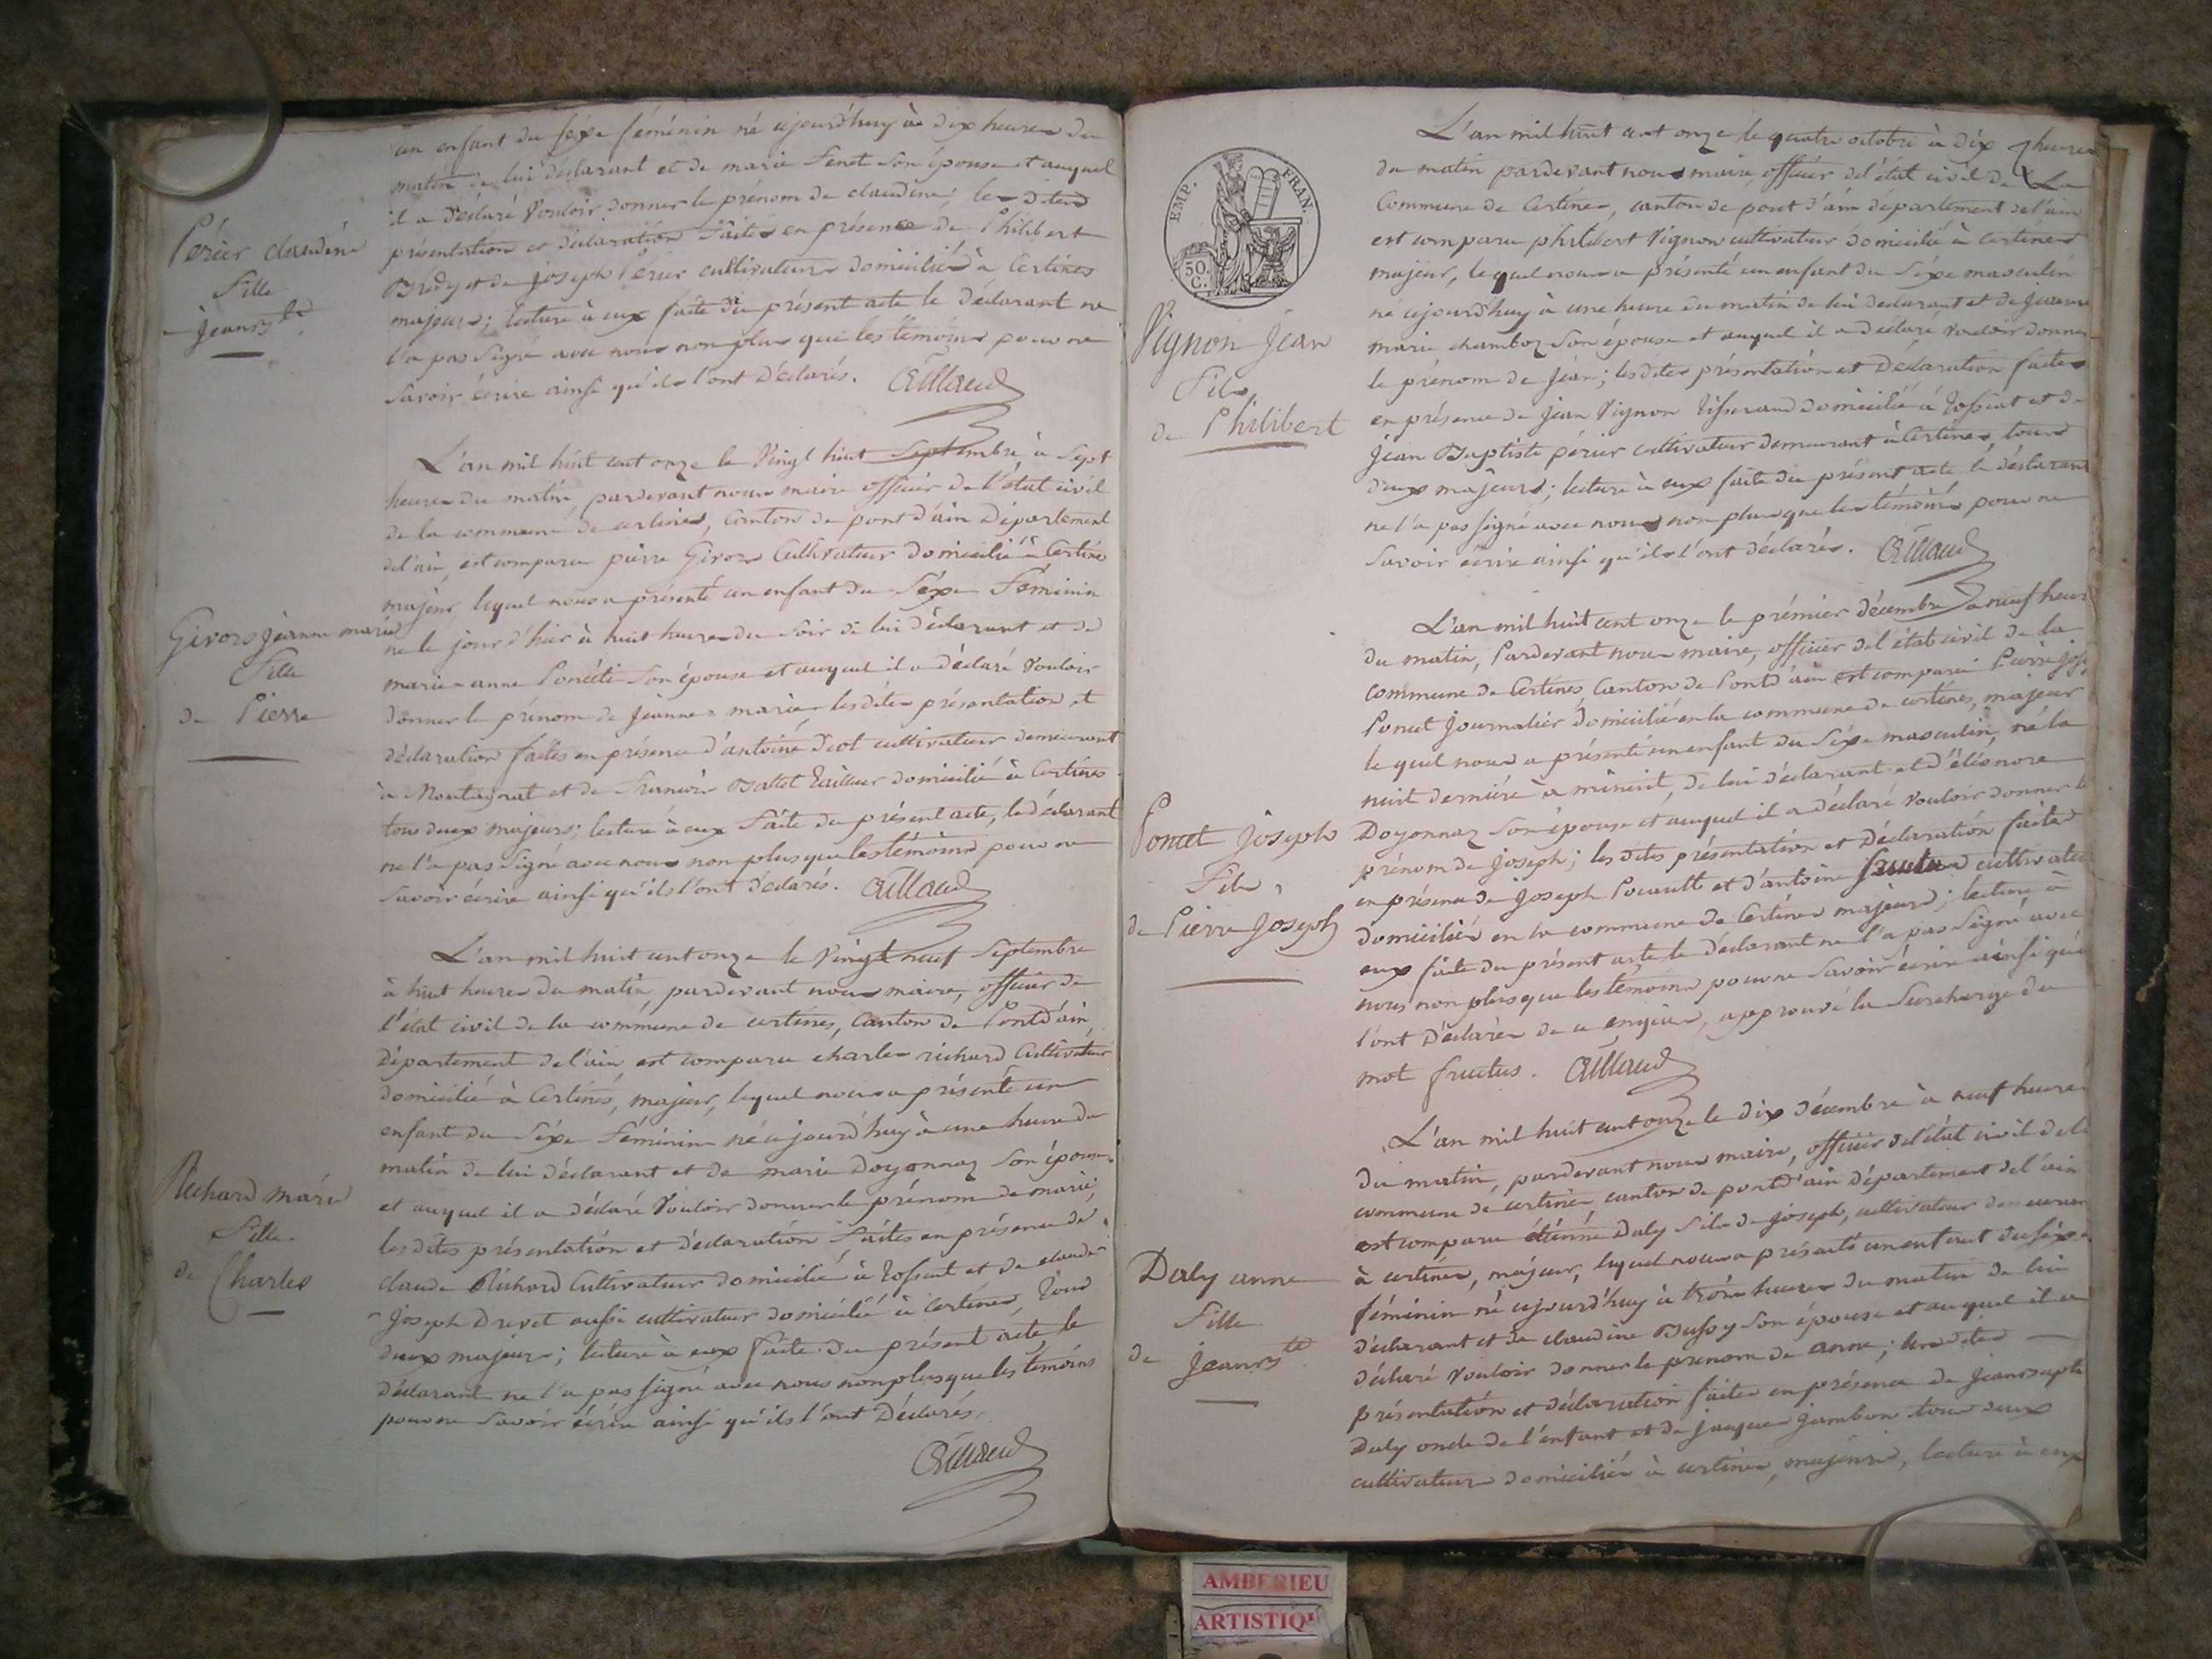 un enfant du séxe féminin né cejourd'huy à dix heures du
matin de lui déclarant et de marie Fenet son épouse et auquel
il a déclaré vouloir donner le prénom de claudine; les dites
présentation et déclaration faites en présence de Philibert
et de joseph Périer cultivateurs domiciliés à Certines
majeurs; lecture à eux faite du présent acte le déclarant ne
l'a pas signé avec nous non plus que les témoins pour ne
savoir écrire ainsi qu'ils l'ont déclarés.
Périer claudine
fille
jean Bte
L'an mil huit cent onze le vingt huit septembre à sept
heures du matin, pardevant nous maire officier de l'état civil
de la commune de certines, Canton de pont d'ain Département
del'ain, est comparu pierre Girors Cultivateur domicilié à Certines
majeur, lequel nous a présenté un enfant du Séxe Féminin
né le jour d'hier à huit heures du soir de lui déclarant et de
marie-anne son épouse et auquel il a déclaré vouloir
donner le prénom de jeanne-marie les dites présentation et
déclaration faites en présence d'antoine cultivateur demeurant
à Montagnat et de François Ballet tailleur domicilié à Certines
tous deux majeurs; lecture à eux faite du présent acte, le déclarant
ne l'a pas signé avec nous non plus que les témoins pour ne
savoir écrire ainsi qu'ils l'ont déclarés.
Girors jeanne marie
fille
de Pierre
L'an mil huit cent onze le vingt neuf septembre
à huit heures du matin, pardevant nous maire, officier de
l'état civil de la commune de certines, Canton de Pontd'ain
département del'ain, est comparu charles richard Cultivateur
domicilié à Certines, majeur, lequel nous a présenté un
enfant du Séxe Féminin né cejourd'huy à une heure du
matin de lui déclarant et de marie Doyonnaz son épouse
et auquel il a déclaré vouloir donner le prénom de marie,
les dites présentation et déclaration faites en présence de
claude Richard Cultivateur domicilié à Tossiat et de claude
joseph Drevet aussi cultivateur domicilié à Certines, tous
deux majeurs; lecture à eux faite du présent acte, le
déclarant ne l'a pas signé avec nous non plus que les témoins
pour ne savoir écrire ainsi qu'ils l'ont Déclarés.
Richard marie
fille
de Charles
EMP. FRAN.
50.
C.
L'an mil huit cent onze le quatre octobre à dix heures
du matin pardevant nous maire, officier del'état civil de La
Commune de Certines, canton de pont d'ain département del'ain
est comparu philibert Vignon cultivateur domicilié à certines
majeur, lequel nous a présenté un enfant du Séxe masculin
né cejourd'huy à une heure du matin de lui déclarant et de jeanne
marie chamboz son épouse et auquel il a déclaré vouloir donner
le prénom de jean; les dites présentation et Déclaration faites
en présence de jean Vignon tisserand domicilié à Tossiat et de
jean Baptiste périer cultivateur demeurant à Certines, tous
deux majeurs; lecture à eux faite du présent acte le déclarant
ne l'a pas signé avec nous non plus que les témoins pour ne
savoir écrire ainsi qu'ils l'ont déclarés.
Vignon jean
Fils
de Philibert
L'an mil huit cent onze le prémier décembre à neuf heures
du matin, Pardevant nous maire, officier del'état civil de la
commune de Certines, Canton de Pontd'ain est comparu Pierre jos
Poncet journalier domicilié en la commune de certines, majeur
lequel nous a présenté un enfant du Séxe masculin, né la
nuit dernière à minuit, de lui déclarant et d'éléonore
Doyonnaz son épouse et auquel il a déclaré vouloir donner le
prénom de joseph; les dites présentation et Déclaration faites
en présence de joseph et d'antoine fructus cultivateurs
domiciliés en la commune de Certines majeurs; lecture à
eux faite du présent acte le déclarant ne l'a pas signé avec
nous non plus que les témoins pour ne savoir écrire ainsi qu'ils
l'ont Déclarés de ce enquis, approuvé la surcharge du
mot fructus.
Poncet joseph
Fils,
de Pierre joseph
L'an mil huit cent onze le dix décembre à neuf heures
du matin, pardevant nous maire, officier del'état civil dela
commune de certines, canton de pontd'ain département del'ain
est comparu étienne Daly fils de joseph, cultivateur demeurant
à certines, majeur, lequel nous a présenté un enfant du séxe
féminin né cejourd'huy à trois heures du matin de lui
déclarant et de claudine son épouse et auquel il a
déclaré vouloir donner le prénom de anne; les dites
présentation et déclaration faites en présence de jean Bapte
Daly oncle de l'enfant et de jaques jambon tous deux
cultivateurs domiciliés à certines, majeurs, lecture à eux
Daly anne
fille
de jean Bte
AMBERIEU
ARTISTIQ